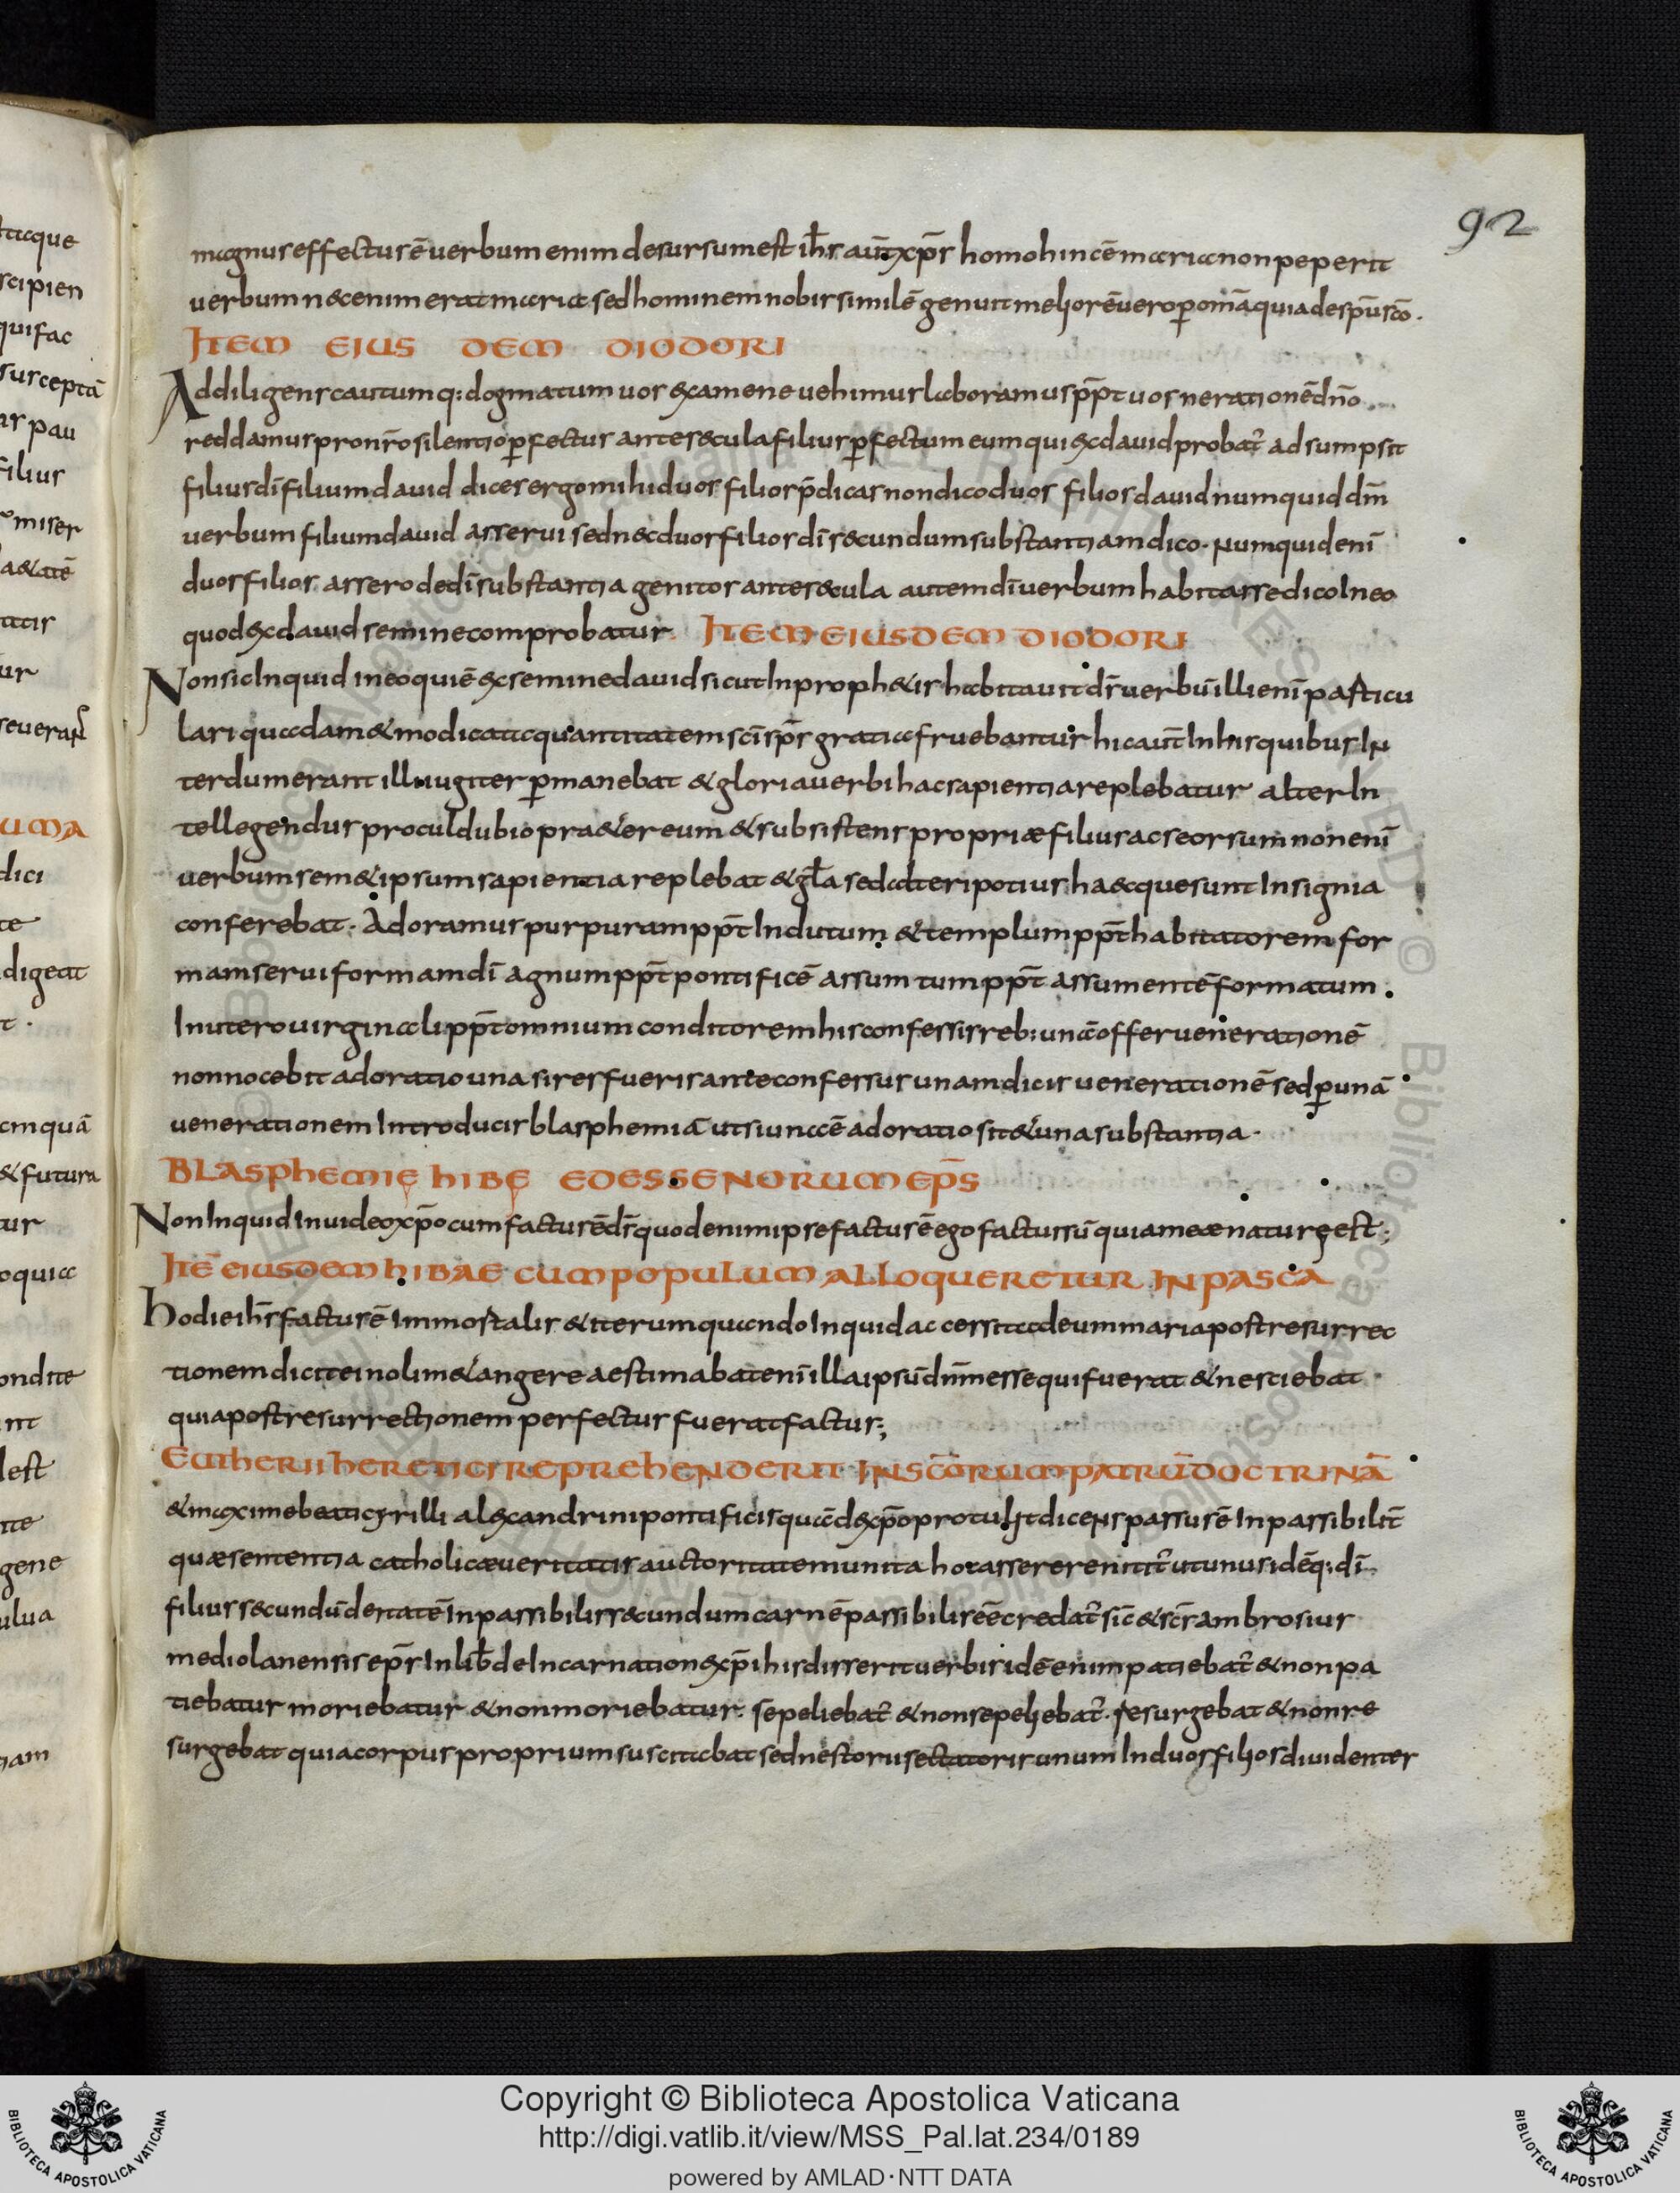 92
magnus effectus ē uerbum enim desursum est ih̄s aūt xp̄s homo hinc ē maria non peperit
uerbum nec enim erat maria sed hominem nobis similē genuit meliorē uero p omīa quia de sp̄u sc̄o.
ITEM EIUSDEM DIODORI
Addiligens cautumq: dogmatum uos examen euehimur laboramus pp̄t uos ne rationē dn̄o
reddamus pro nr̄o silentio pfectus ante secula filius pfectum eum qui ex dauid probat̄ adsumpsit
filius dī filium dauid dices ergo mihi duos filios p̄dicas non dico duos filios dauid numquid dm̄
uerbum filium dauid asserui sed nec duos filios dī secundum substantiam dico. Numquid enī
duos filios assero de dī substantia genitos ante secula autem dī uerbum habitasse dico In eo
quod ex dauid semine comprobatur. ITEM EIUSDEM DIODORI
Non sic Inquid in eo qui ē ex semine dauid sicut In prophetis habitauit dī uerbū illi enī particu
lari quadam & modica ac quantitatem scī sp̄s gratia fruebantur hic aūt In his quibus In
terdum erant illi iugiter pmanebat & gloria uerbi hac sapientia replebatur alter In
tellegendus procul dubio pra&er eum & subsistens propriæ filius ac seorsum non enī
uerbum sem& ipsum sapientia replebat & gl̄a sed alteri potius haecque sunt Insignia
conferebat. Adoramus purpuram pp̄t Indutum & templum pp̄t habitatorem for
mam serui formam dī agnum pp̄t pontificē assumtum pp̄t assumentē formatum.
In utero uirginali pp̄t omnium conditorem his confessis reb: unā offer uenerationē
non nocebit adoratio una si res fueris ante confessus unam dicis uenerationē sed p unā
uenerationem Introducis blasphemiā ut si una ē adoratio sit & una substantia.
BLASPHEMIE HIBE EDESSENORUM EP̄S
Non Inquid Inuideo xp̄o cum factus ē ds̄ quod enim ipse factus ē ego factus sū quia meae naturę est;
ITĒ EIUSDEM HIBAE CUM POPULUM ALLOQUERETUR IN PASCA
hodie ih̄s factus ē Immortalis & iterum quando Inquid accessit ad eum maria post resurrec
tionem dicit ei noli me tangere aestimabat enī illa ipsū dn̄m esse qui fuerat & nesciebat
quia post resurrectionem perfectus fuerat factus;
EUTHERII HERETICI REPREHENDERIT IN SC̄ORUM PATRŪ DOCTRINĀ
& maxime beati cyrilli alexandrini pontificis quā d̄ xp̄o protulit dicens passus ē Inpassibilit̄
quæ sententia catholicæ ueritatis auctoritate munita hoc asserere nitit̄ ut unus idēq: dī
filius secundū deitatē Inpassibilis secundum carnē passibilis eē credat̄ sic & sc̄s ambrosius
mediolanensis ep̄s In lib̄ de Incarnatione xp̄i his disserit uerbis idē enim patiebat̄ & non pa
tiebatur moriebatur & non moriebatur. sepeliebat̄ & non sepeliebat̄. Resurgebat & non re
surgebat quia corpus proprium suscitabat sed nestorii sectatoris unum In duos filios diuidenter
Copyright © Biblioteca Apostolica Vaticana
http://digi.vatlib.it/view/MSS_Pal.lat.234/0189
powered by AMLAD·NTT DATA
BIBLIOTECA APOSTOLICA VATICANA
BIBLIOTECA APOSTOLICA VATICANA